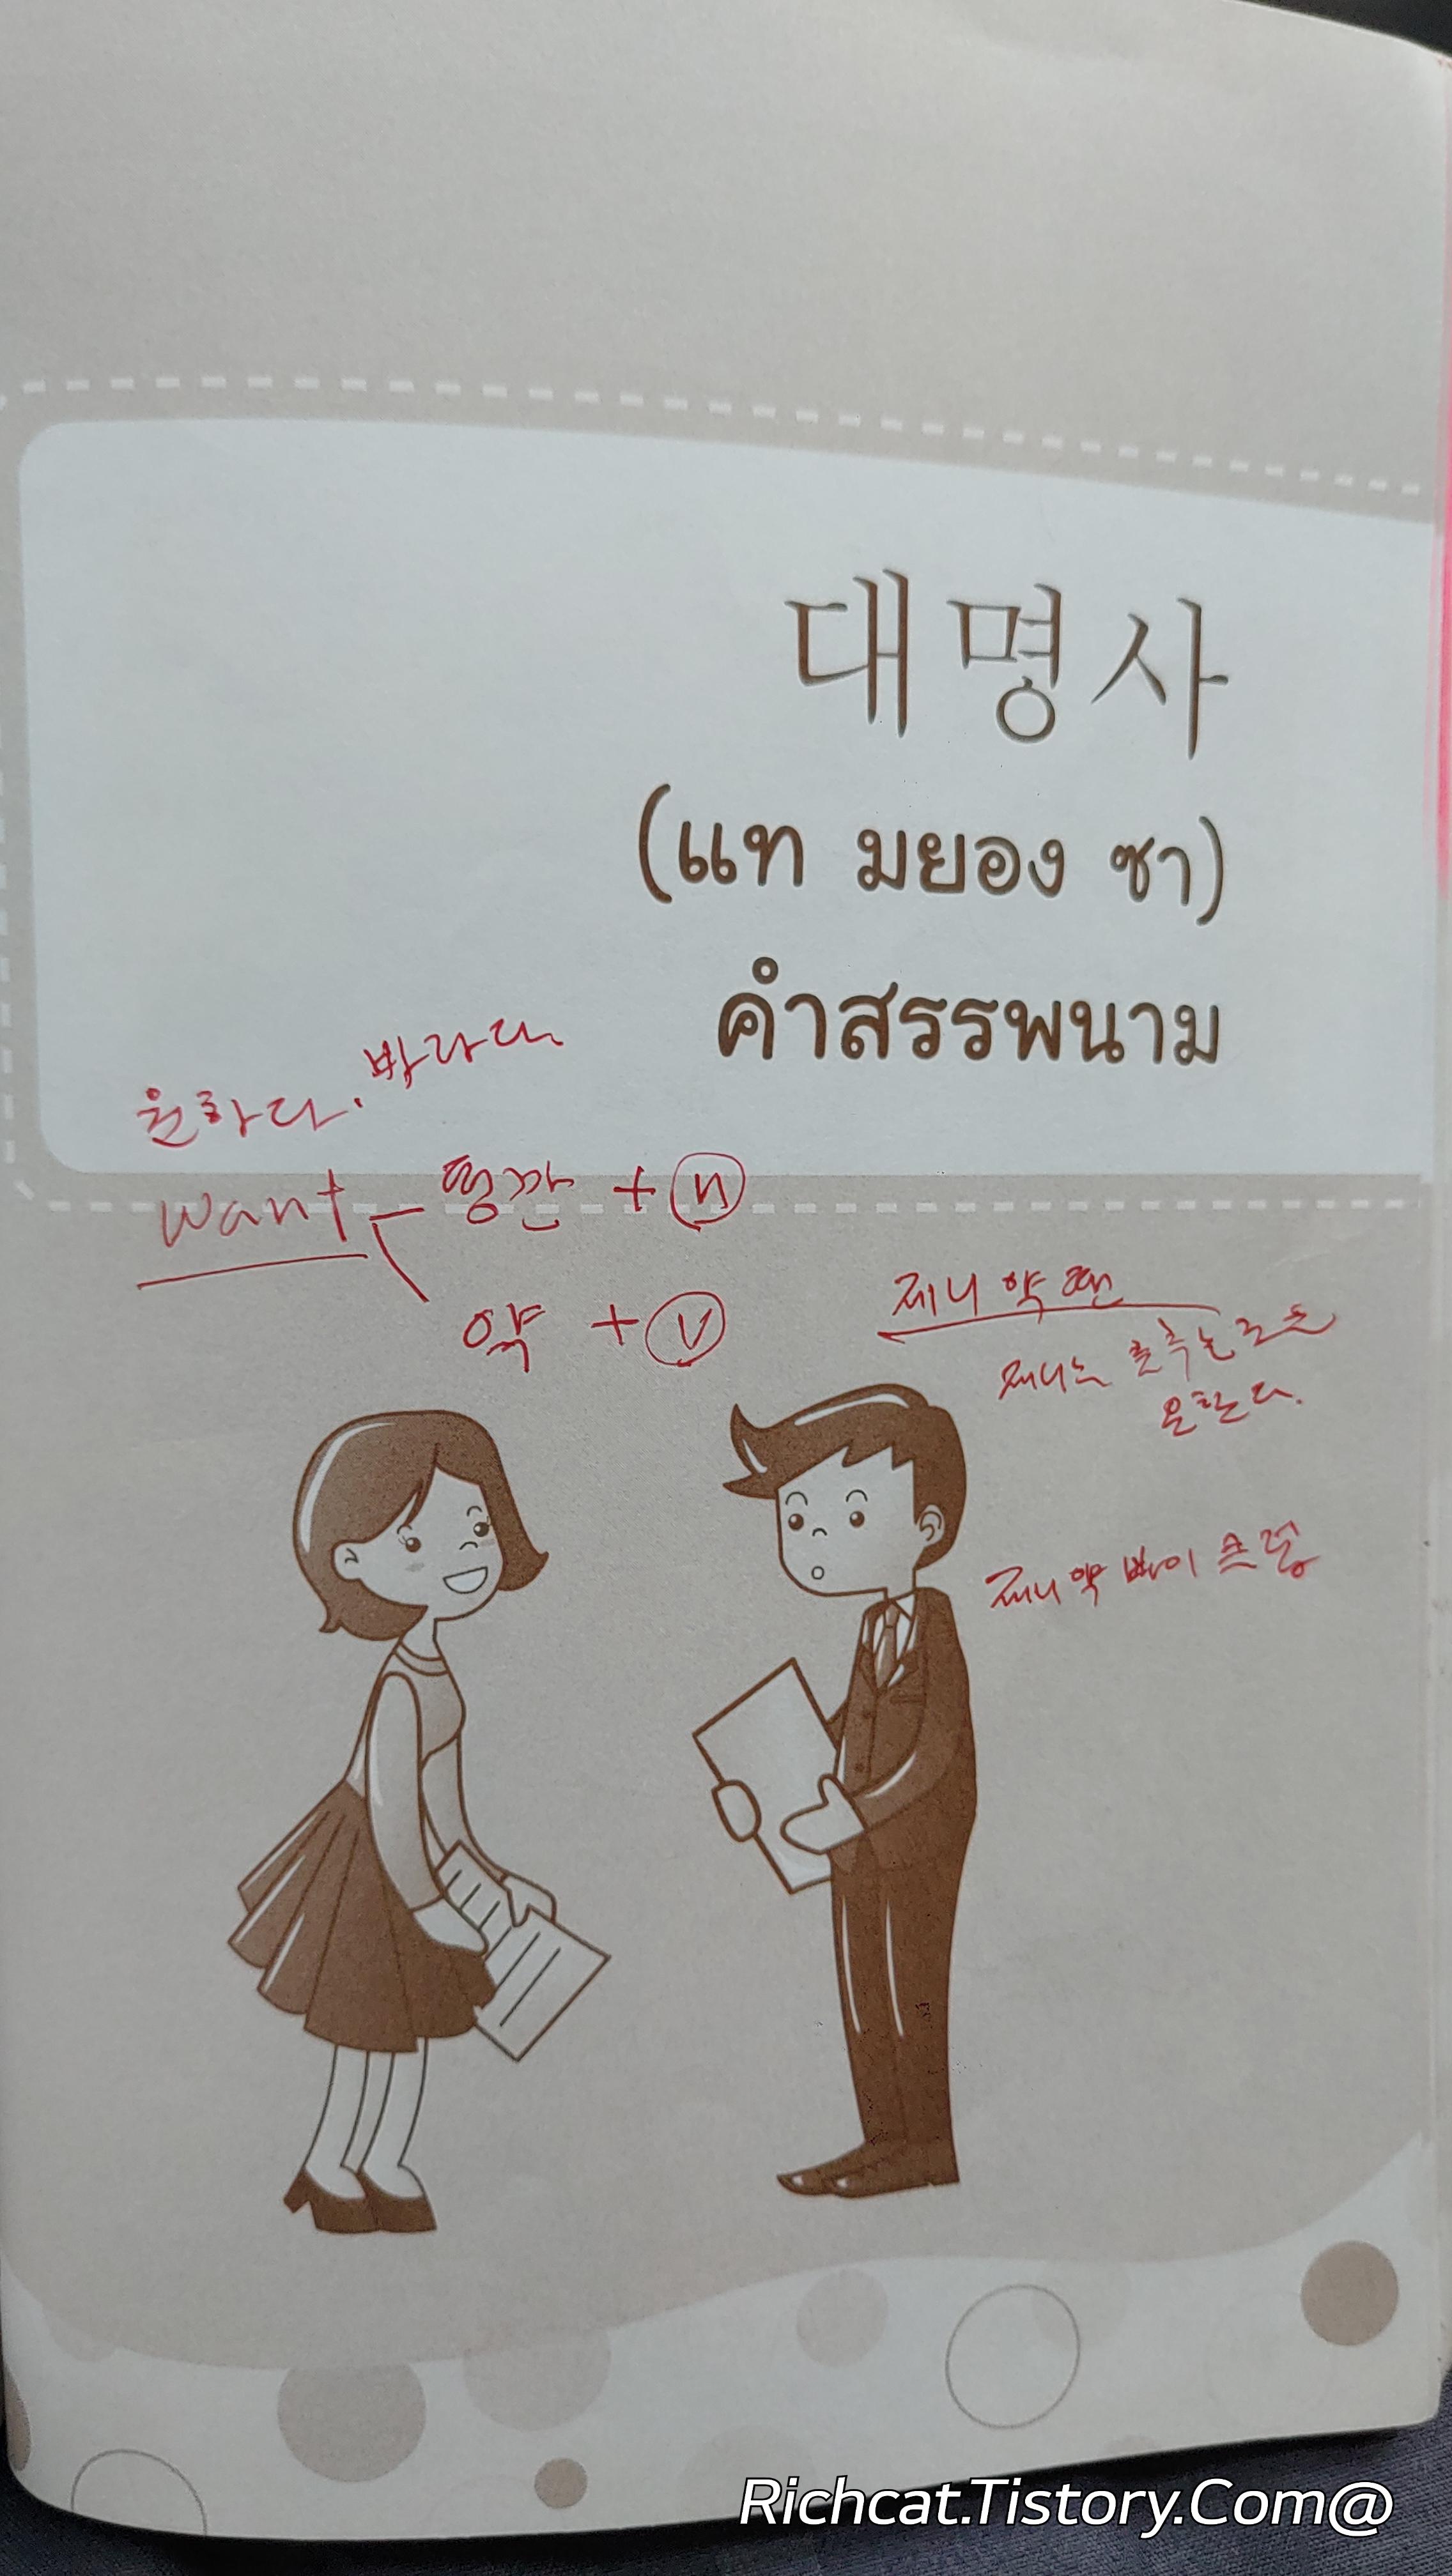 대명사
(แท มยอง ซา)
คำสรรพนาม
원하다. 바라다
want 떵깐 + n
약 + v
제니 약 땐
제니는 춤추는
원한다.
제니 약 빠이
Richcat.Tistory.Com@